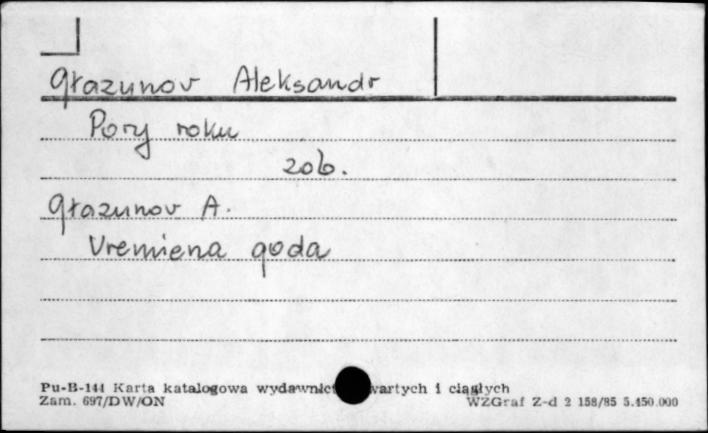 Głazunov Aleksandr
Pory roku
zob.
Głazunov A.
Vremiena goda
Pu-B-144 Karta katalogowa wydawnict wartych i ciągłych
Zam. 697/DW/ON WZGraf Z-d 2 158/85 5.450.000